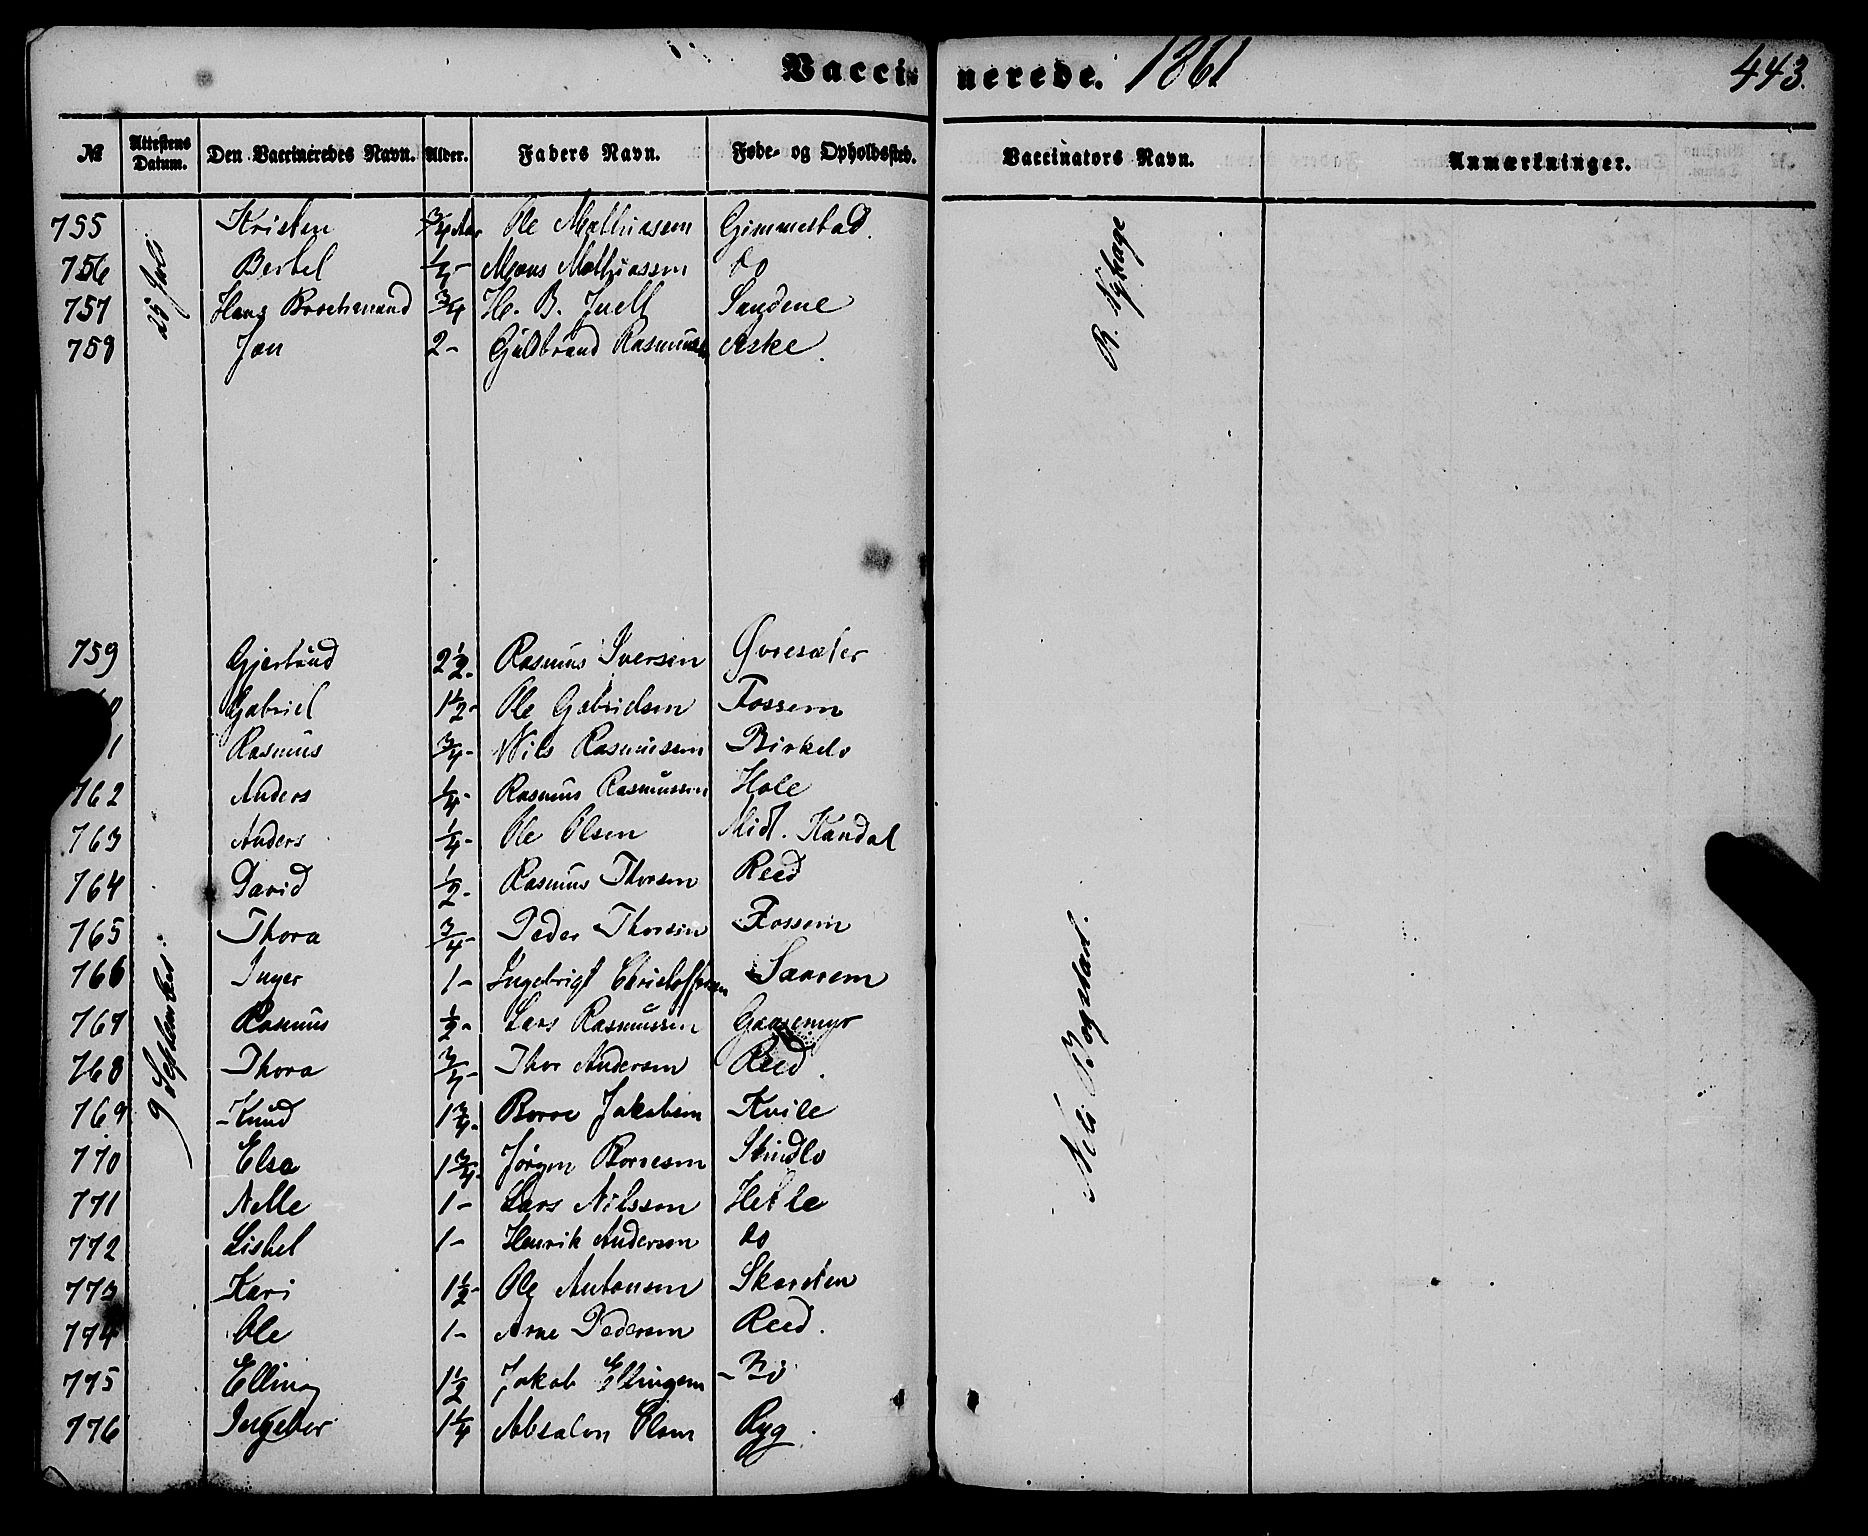 Vaccinerede. 1861 443.
№ Attestens Datum. Den Vaccineredes Navn. Alder. Faders Navn. Føde- og Opholdssted. Vaccinators Navn. Anmærkninger.
755 Kristen 3/4 Aar Ole Mathiassen Gimmestad.
756 Bertel 1/4 - Mons Mathiassen do
757 Hans Brochmand 3/4 H. B. Juell Sandene
758 Jon 2 - Guldbrand Rasmussen Aske.
25 Juli
759 Gjertrud 2 1/2 - Rasmus Iversen Øvresæter
Gabriel 1 1/2 - Ole Gabrielsen Fossem
1 Rasmus 3/4 - Nils Rasmussen Birkelo
762 Anders 1/4 - Rasmus Rasmussen Hole
763 Anders 1/4 - Ole Olsen Midt. Kandal
764 David 1/2 - Rasmus Thorsen Reed
765 Thora 3/4 - Peder Thorsen Fossem
766 Inger 1 - Ingebrigt Christoffersen Sanrem
767 Rasmus 1/2 - Lars Rasmussen Gaasemyr
768 Thora 3/4 - Thor Andersen Reed.
769 Knud 1 3/4 - Borre Jakobsen Kvile
770 Elsa 1 3/4 - Jørgen Borresen Skindlo
771 Nelle 1 - Lars Nilssen Hetle
772 Lisbet 1 - Henrik Andersen do
773 Kari 1 1/2 - Ole Antonsen Skarsten
774 Ole 1 - Arne Pedersen Reed.
775 Elling 1 1/2 Jakob Ellingsen Bø
776 Ingebor 1 1/4 Absalon Olsen Ryg.
9 September.